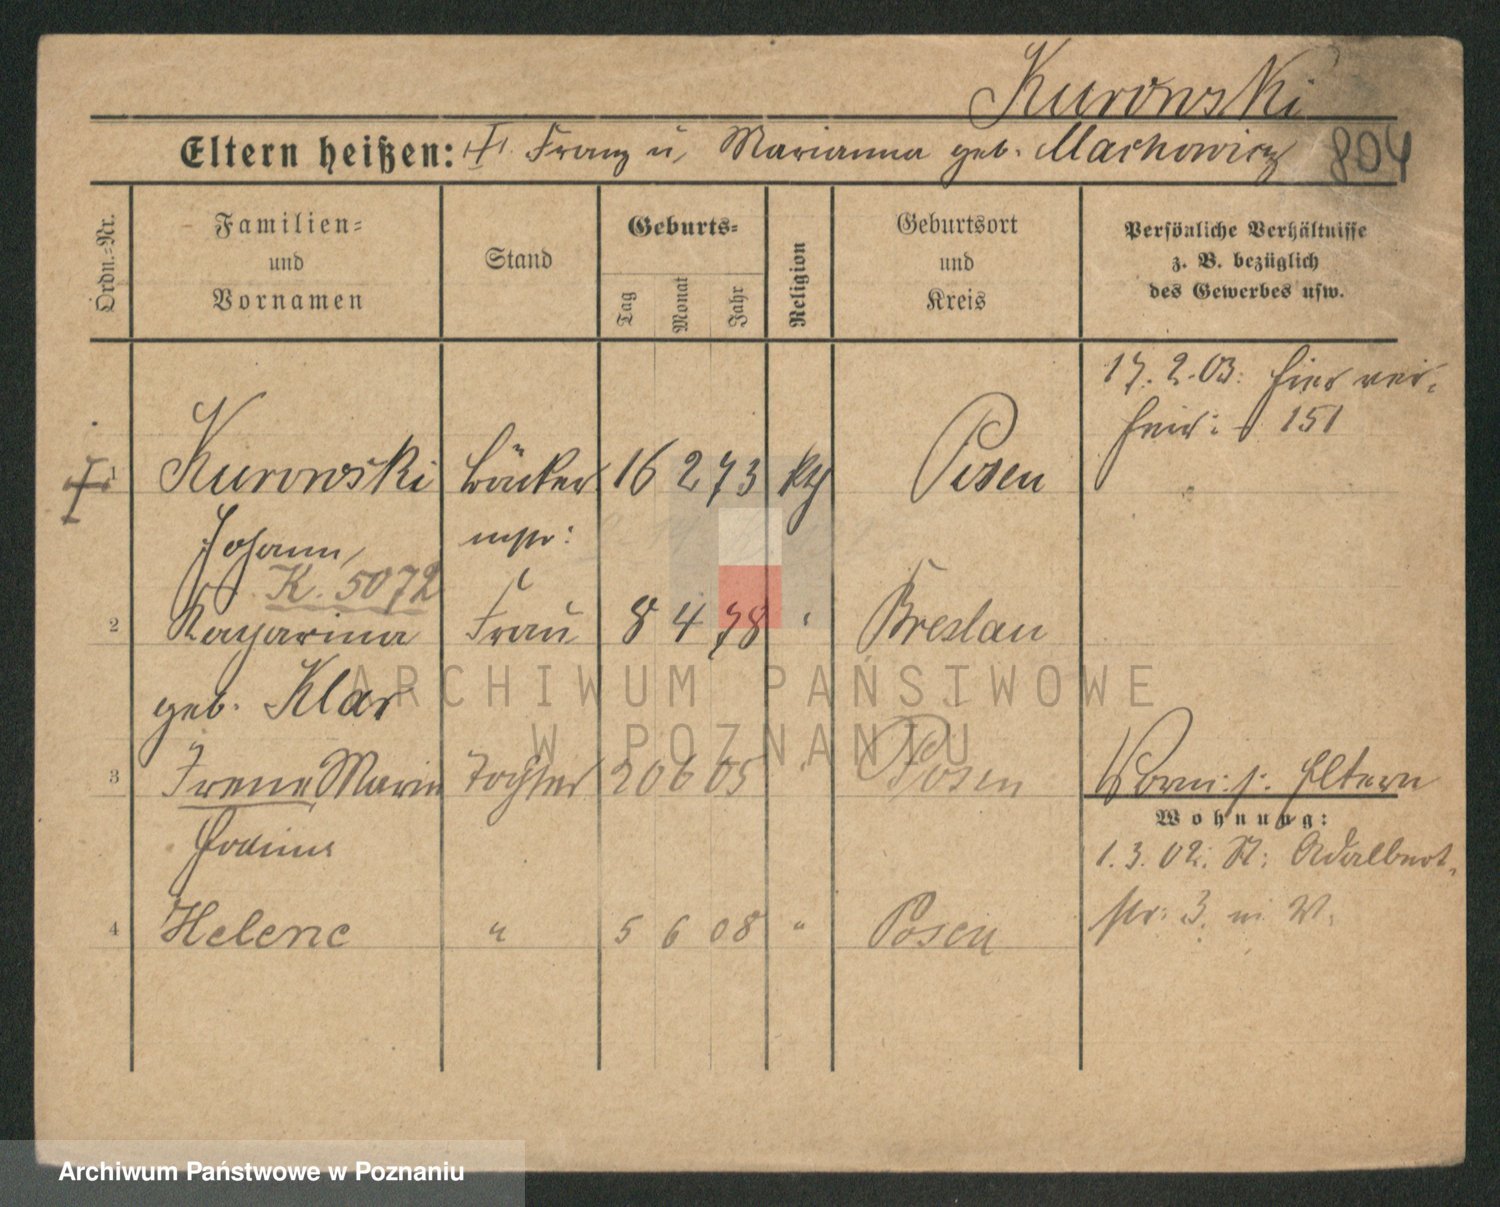 Kurowski
Eltern heißen: Franz u. Marianna geb. Machowicz 804
Ordn.-Nr.
Familien-
und
Vornamen
Stand
Geburts-
Tag
Monat
Jahr
Religion
Geburtsort
und
Kreis
Persönliche Verhältnisse
z. B. bezüglich
des Gewerbes usw.
17.2.03. hier ver-
heir: 151
1 Kurowski Bäcker 16 2 73 kth Posen
Johann, mstr:
K. 5072
2 Katharina Frau 8 4 78 " Breslau
geb. Klar
3 Irene Marie Tochter 20 6 05 " Posen
4 Helene " 5 6 08 " Posen
Vorm: s. Eltern
Wohnung:
1.3.02. St. Adalbert-
str: 3. W.
ARCHIWUM PAŃSTWOWE
W POZNANIU
Archiwum Państwowe w Poznaniu